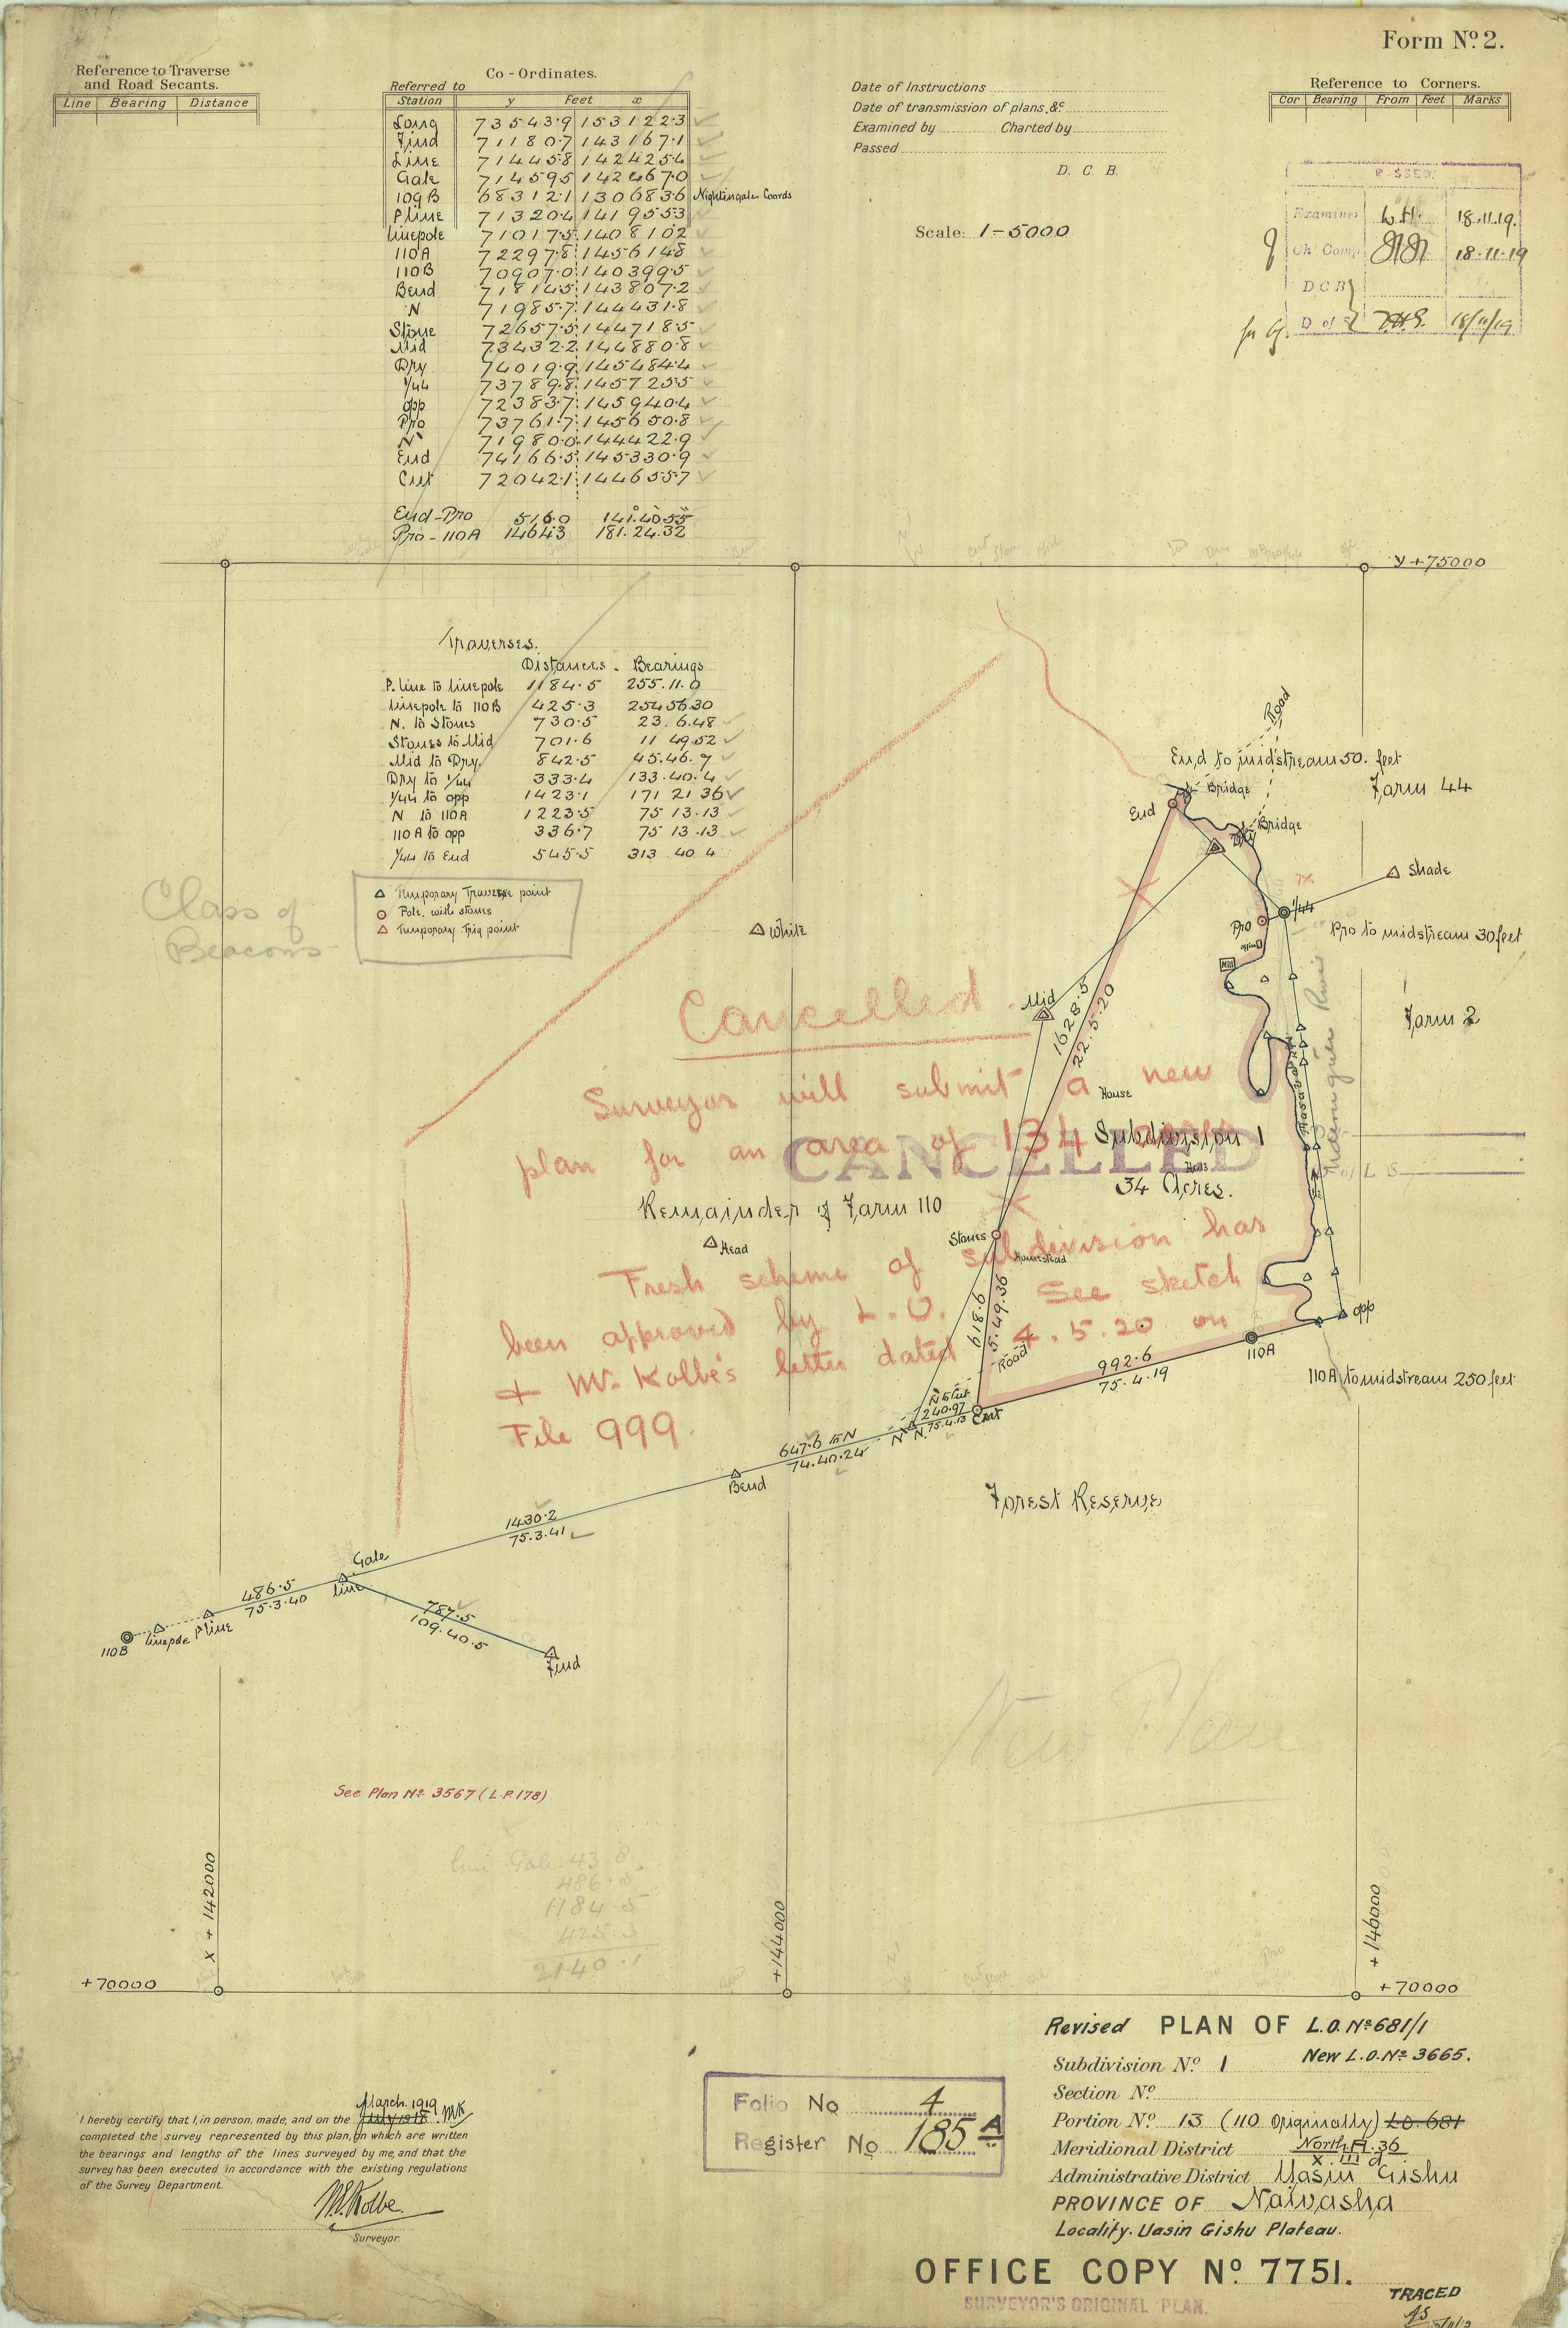 Form No 2.
Reference to Traverse
and Road Secants.
Line Bearing Distance
Co-Ordinates.
Referred to
Station y Feet x
Long 73543.9 153122.3
Find 71180.7 143167.1
Line 71445.8 142425.4
Gate 71459.5 142467.0
109B 68312.1 130683.6 Nightingales Coords
P line 71320.4 141955.3
linepole 71017.5 140810.2
110A 72297.8 145614.8
110B 70907.0 140399.5
Bend 71814.5 143807.2
N 71985.7 144431.8
Stone 72657.5 144718.5
Mid 73432.2 144880.8
Dry 74019.9 145484.4
1/44 73789.8 145725.5
opp 72383.7 145940.4
Pro 73761.7 145650.8
N` 71980.0 144422.9
End 74166.5 145330.9
Cut 72042.1 144655.7
End-Pro 516.0 141.40.55
Pro-110A 1464.3 181.24.32
Date of Instructions
Date of transmission of plans, &c
Examined by Charted by
Passed
D. C. B.
Scale: 1-5000
Reference to Corners.
Cor Bearing From Feet Marks
Examiner W.H. 18.11.19.
Ch. Comp 18-11-19
D C B
D of S 18/11/19
y + 75000
Traverses.
Distances. Bearings
P. line to linepole 1184.5 255.11.0
linepole to 110B 425.3 254 56 30
N. to Stones 730.5 23.6.48
Stones to Mid 701.6 11 49.52
Mid to Dry. 842.5 45.46.7
Dry to 1/44 333.4 133.40.4
1/44 to opp 1423.1 171 21 36
N to 110A 1223.5 75 13.13
110A to opp 336.7 75 13.13
1/44 to End 545.5 313 40 4
Temporary Traverse point
Pole with stones
Temporary Trig point
Class of
Beacons
Road
End to midstream 50. feet
Farm 44
Bridge
End
Bridge
Dry
Shade
1/44
Pro
Pro to midstream 30 feet
office
Mill
White
Mid
1628.5
22.5.20
Farm 2
Cancelled
Surveyor will submit a new
plan for an area of 134 acres
CANCELLED
House
Subdivision 1
34 Acres.
of L S
Remainder of Farm 110
Head
Stones
Homestead
Fresh scheme of subdivision has
been approved by L.O. See sketch
+ Mr. Kolbe's letter dated 4.5.20 on
File 999.
618.6
5.49.36
Road
opp
110A
992.6
75.4.19
110A to midstream 250 feet
N to Cut
240.97
75.4.13
N` N.
Cut
647.6 to N
74.40.24
Bend
Forest Reserve
1430.2
75.3.41
Gate
line
486.5
75.3.40
110B linepole P line
787.5
109.40.5
Find
New Plan
See Plan No. 3567 (L.P. 178)
Line Gate 43.8
486.5
1184.5
425.3
2140.1
x + 142000
+144000
+146000
+70000
+70000
Revised PLAN OF L.O. No 681/1
Subdivision No. 1 New L.O. No. 3665.
Section No.
Portion No. 13 (110 Originally) L.O. 681
Meridional District North A 36
X. III d.
Administrative District Uasin Gishu
PROVINCE OF Naivasha
Locality. Uasin Gishu Plateau.
Folio No 4
Register No 185 A
March. 1919. MK
I hereby certify that I, in person, made, and on the
completed the survey represented by this plan, on which are written
the bearings and lengths of the lines surveyed by me, and that the
survey has been executed in accordance with the existing regulations
of the Survey Department.
Kolbe.
Surveyor.
OFFICE COPY No 7751.
SURVEYOR'S ORIGINAL PLAN.
TRACED